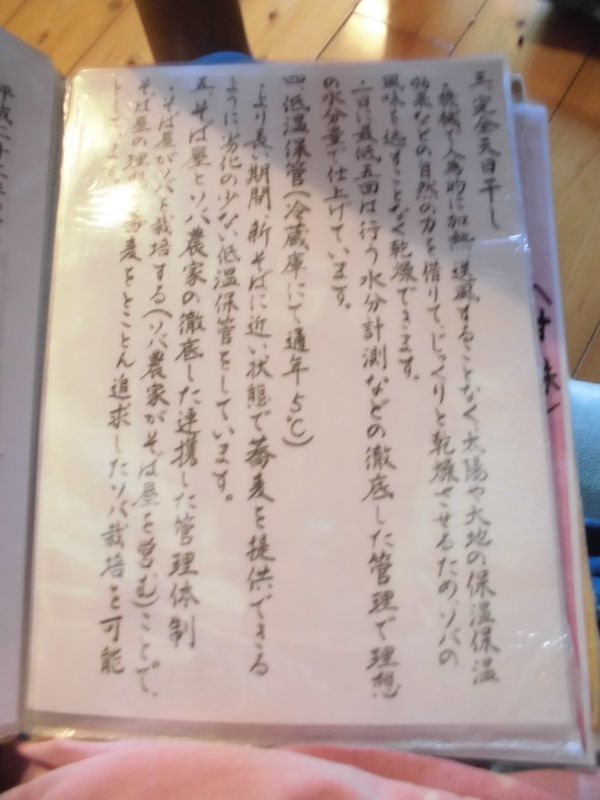 三、完全天日干し
・機械で人為的に加熱、送風することなく、太陽や大地の保温保温
効果などの自然の力を借りて、じっくりと乾燥させるため、ソバの
風味を逃すことなく乾燥できます。
・一日に最低五回は行う水分計測などの徹底した管理で理想
の水分量で仕上げています。
四、低温保管(冷蔵庫にて通年5℃)
・より長い期間、新そばに近い状態で蕎麦を提供できる
ように、劣化の少ない低温保管をしています。
五、そば屋とソバ農家の徹底した連携した管理体制
・そば屋がソバを栽培する(ソバ農家がそば屋を営む)ことで、
そば屋の理想の蕎麦をとことん追求したソバ栽培を可能
としています。
平成二十三年